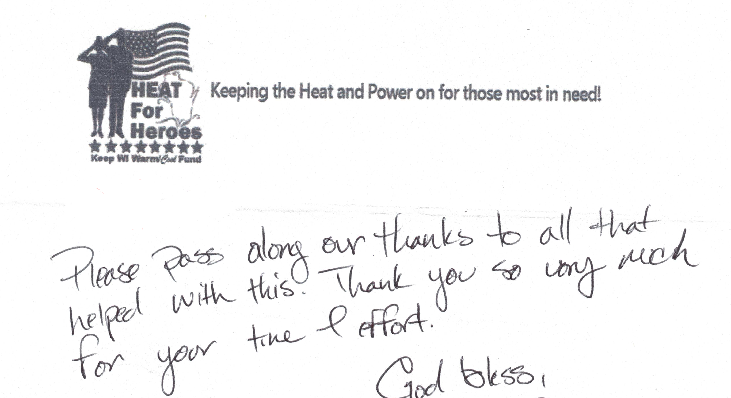 HEAT
For
Heroes
Keep WI Warm/Cool Fund
Keeping the Heat and Power on for those most in need!
Please pass along our thanks to all that
helped with this. Thank you so very much
for your time & effort.
God bless,